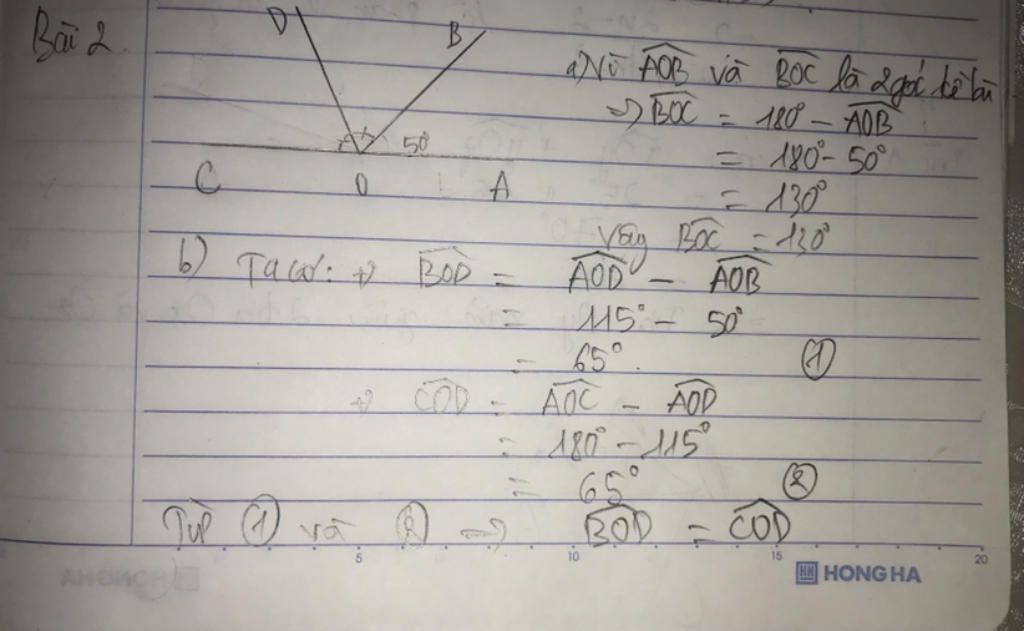 Bài 2.
D
B
50°
C
O
A
a) Vì AOB và BOC là 2 góc kề bù
=> BOC = 180° - AOB
= 180° - 50°
= 130°
Vậy BOC = 130°
b) Ta có: +) BOD = AOD - AOB
= 115° - 50°
= 65°. ①
+) COD = AOC - AOD
= 180° - 115°
= 65° ②
Từ ① và ② => BOD = COD
5 10 15 20
HH HONG HA